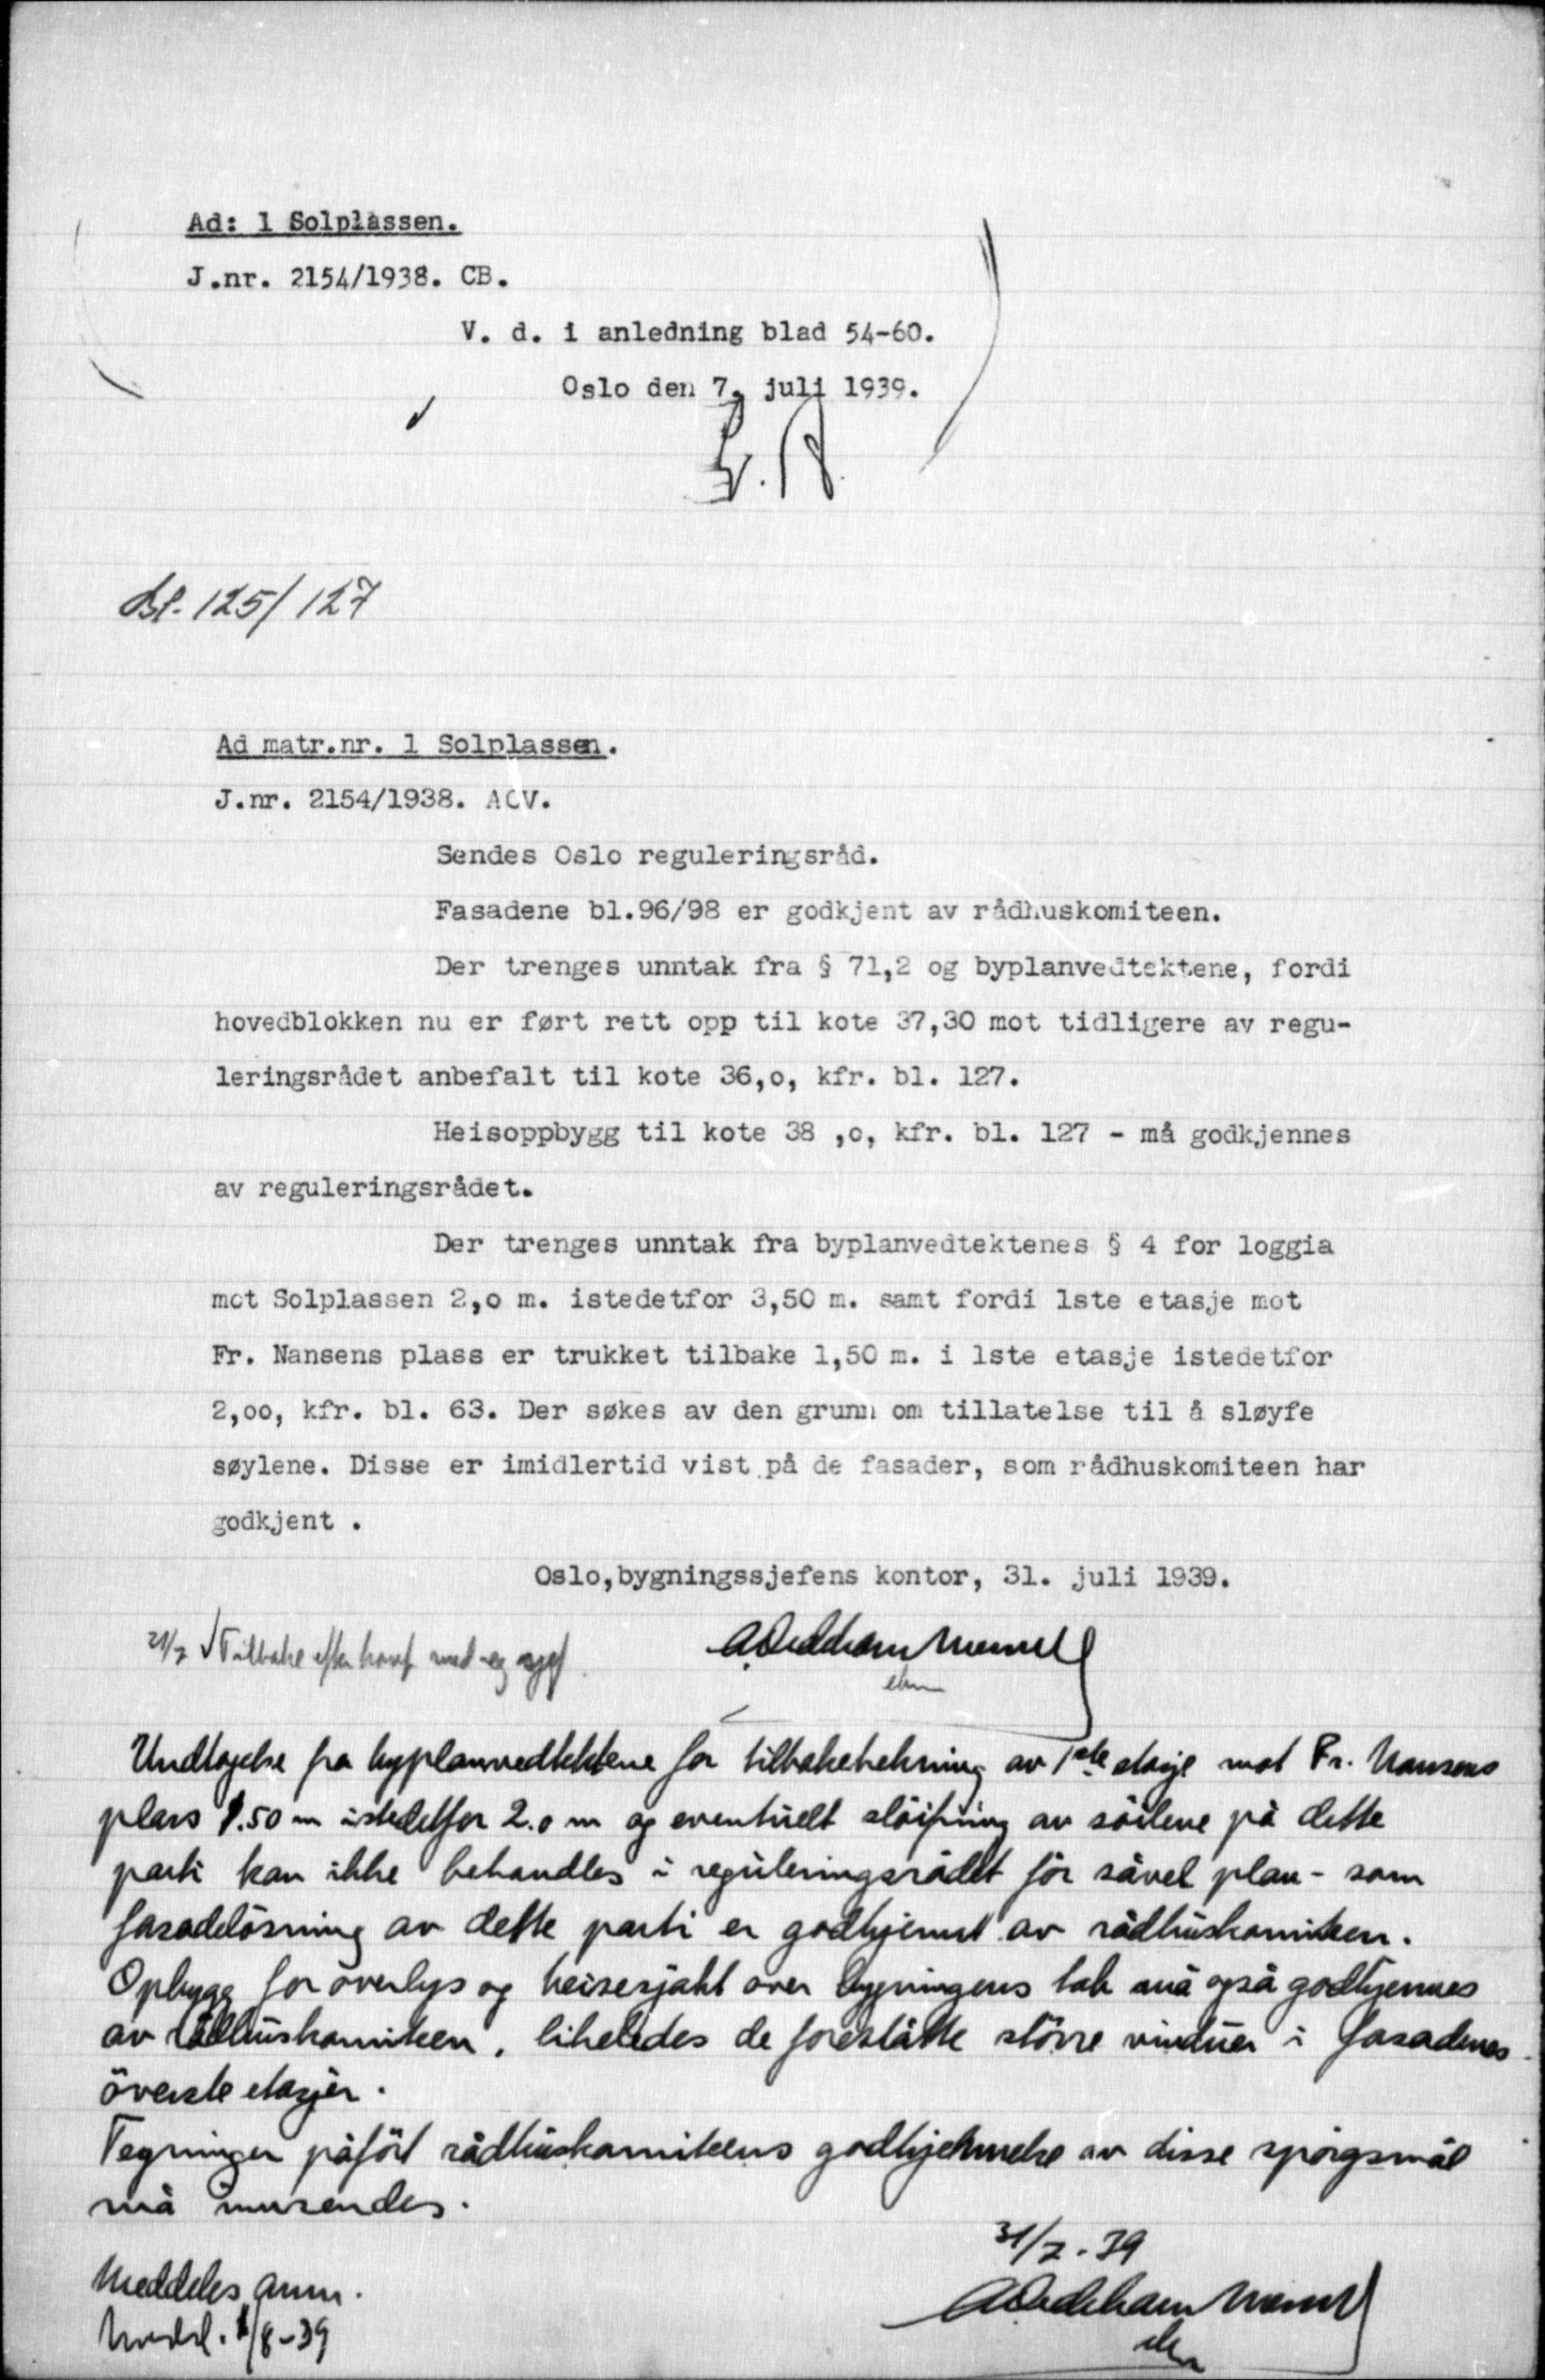 Ad: 1 Solplassen.
J.nr. 2154/1938. CB.
V. d. i anledning blad 54-60.
Oslo den 7. juli 1939.
Bl. 125/127
Ad matr.nr. 1 Solplassen.
J.nr. 2154/1938. ACV.
Sendes Oslo reguleringsråd.
Fasadene bl.96/98 er godkjent av rådhuskomiteen.
Der trenges unntak fra § 71,2 og byplanvedtektene, fordi
hovedblokken nu er ført rett opp til kote 37,30 mot tidligere av regu-
leringsrådet anbefalt til kote 36,o, kfr. bl. 127.
Heisoppbygg til kote 38 ,o, kfr. bl. 127 - må godkjennes
av reguleringsrådet.
Der trenges unntak fra byplanvedtektenes § 4 for loggia
mot Solplassen 2,o m. istedetfor 3,50 m. samt fordi 1ste etasje mot
Fr. Nansens plass er trukket tilbake 1,50 m. i 1ste etasje istedetfor
2,oo, kfr. bl. 63. Der søkes av den grunn om tillatelse til å sløyfe
søylene. Disse er imidlertid vist på de fasader, som rådhuskomiteen har
godkjent .
Oslo,bygningssjefens kontor, 31. juli 1939.
31/7 Tilbake efter konf. med reg sjef.
Undtagelse fra byplanvedtektene for tilbaketrekning av 1ste etasje mot Fr. Nansens
plass 1.50 m istedetfor 2.0 m og eventuelt slöifning av söilene på dette
parti kan ikke behandles i reguleringsrådet för såvel plan- som
fasadelösning av dette parti er godkjennt av rådhuskomiteen.
Opbygg for overlys og heisesjakt over bygningens tak må også godkjennes
av rådhuskomiteen, likeledes de foreslåtte större vinduer i fasadenes
överste etasjer.
Tegninger påfört rådhuskomiteens godkjennelse av disse spörgsmål
må innsendes.
31/7-39
Meddeles anm.
Medd. 1/8-39